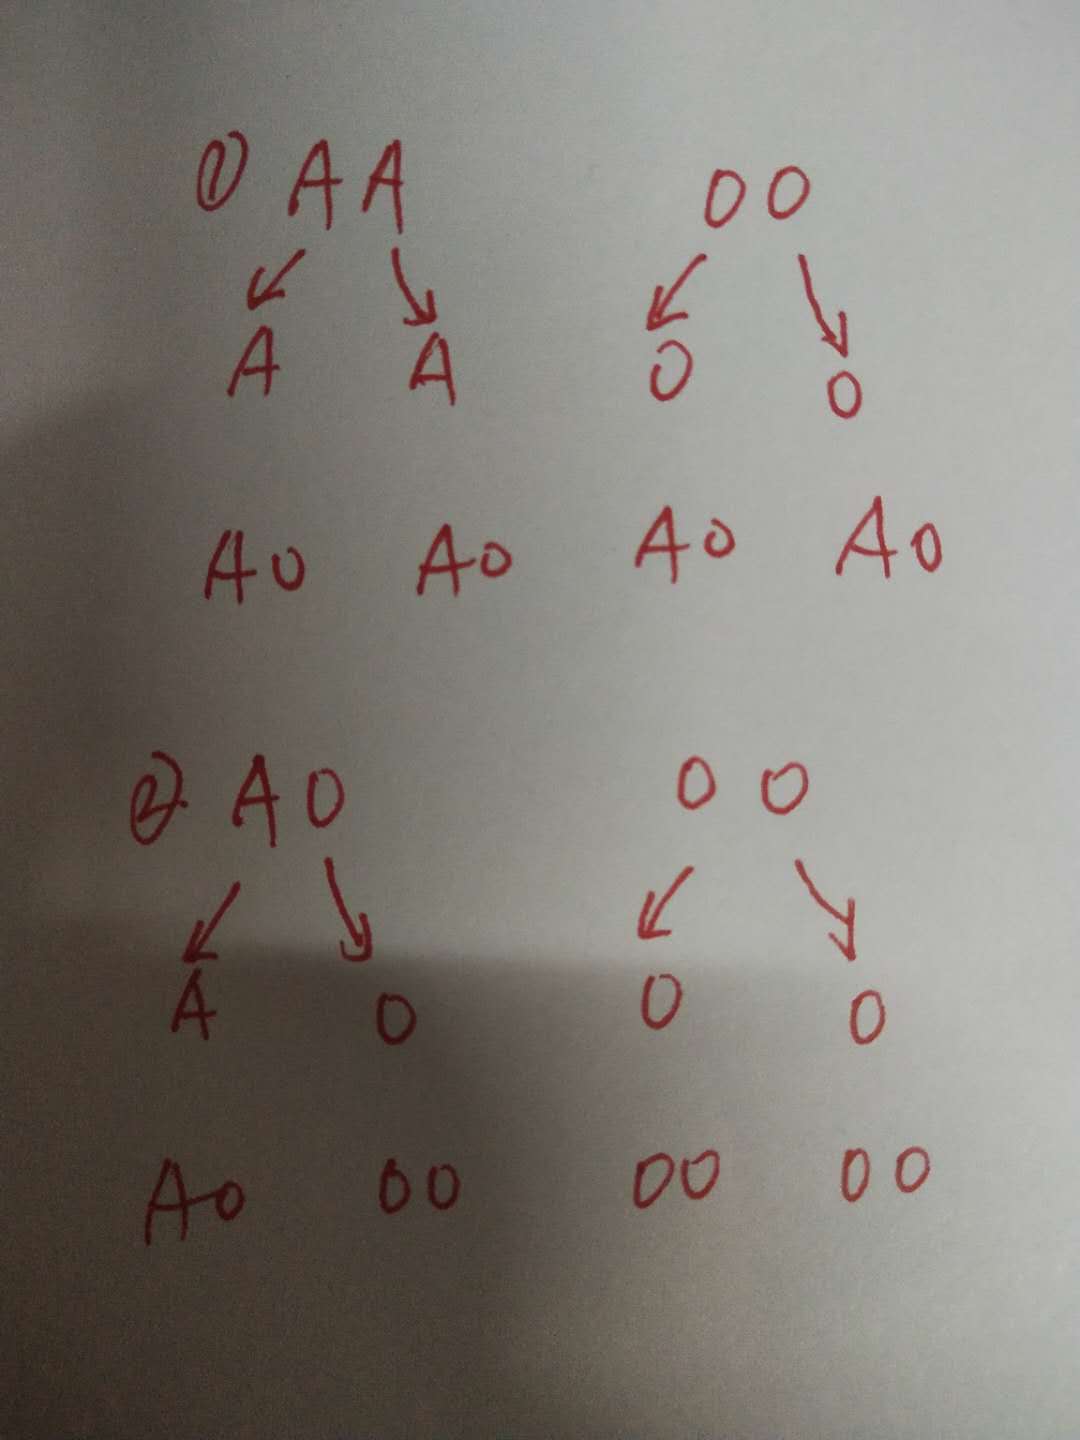 ① AA OO
A A O O
AO AO AO AO
② AO OO
A O O O
AO OO OO OO